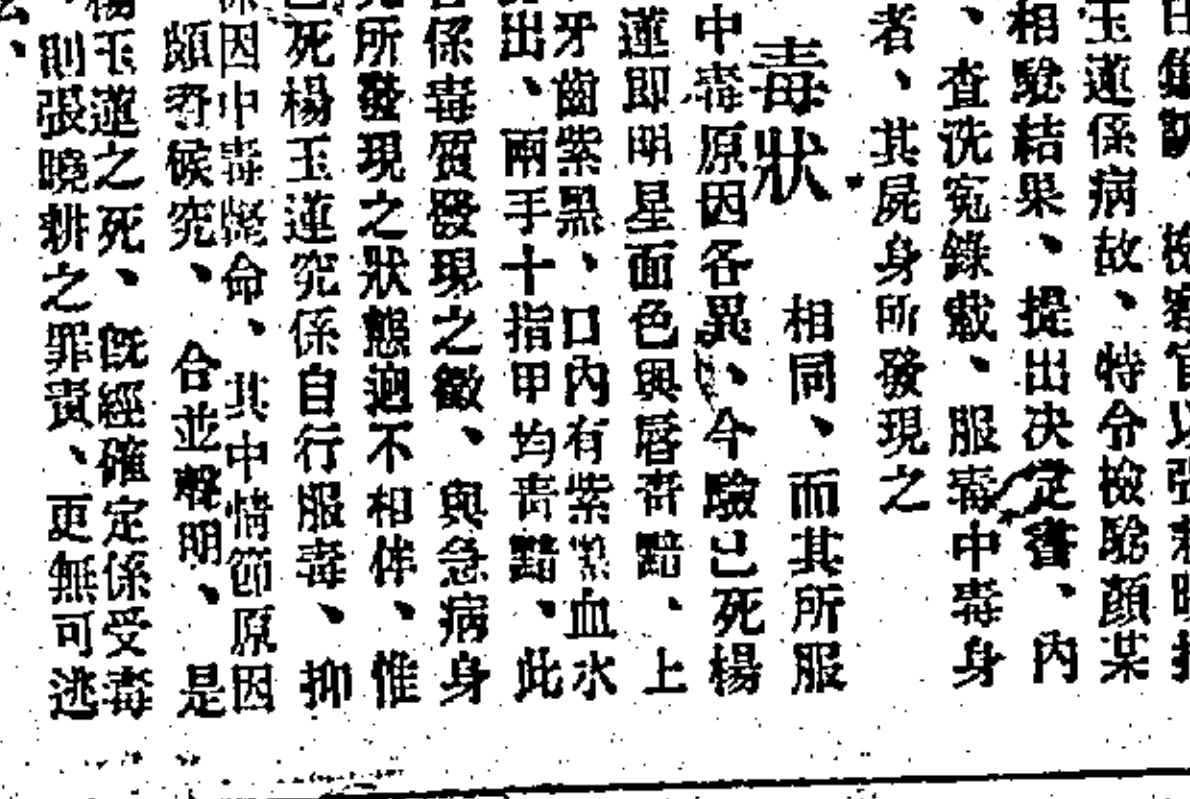 玉蓮係病故、特令檢驗顏某
相驗結果、提出决定書、內
、查洗寃錄載、服毒中毒身
者、其屍身所發現之
毒狀
相同、而其所服
中毒原因各異、今驗已死楊
蓮即明星面色與唇靑黯、上
牙齒紫黑、口內有紫黑血水
出、兩手十指甲均靑黯、此
係毒質發現之徵、與急病身
所發現之狀態逈不相侔、惟
已死楊玉蓮究係自行服毒、抑
係因中毒斃命、其中情節原因
頗奇候究、合並聲明、是
楊玉蓮之死、旣經確定係受毒
、則張曉耕之罪責、更無可逃